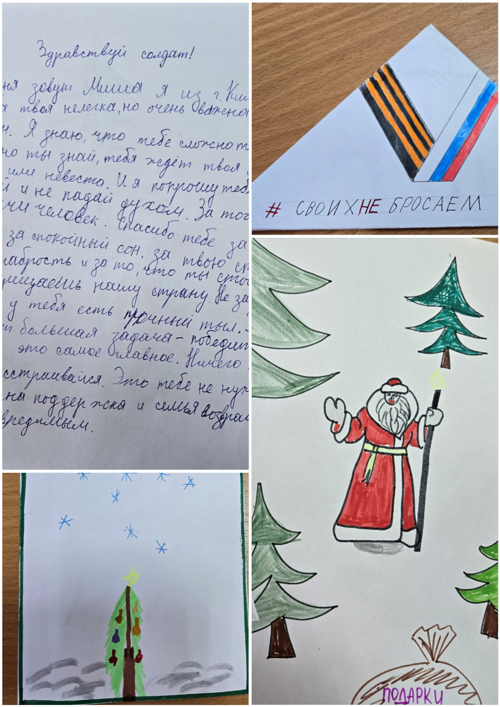 Здравствуй солдат!
зовут Миша я из г.
твоя нелегка, но очень важна
Я знаю, что тебе сложно
но ты знай, тебя ждёт твоя
или невеста. И я попрошу тебя
и не падай духом. За то
человек. Спасибо тебе за
за спокойный сон, за твою
храбрость и за то, что ты
нашу страну. Не
у тебя есть прочный тыл.
большая задача - победить
это самое главное. Ничего
Это тебе не
поддержка и семья

# СВОИХ НЕ БРОСАЕМ

ПОДАРКИ